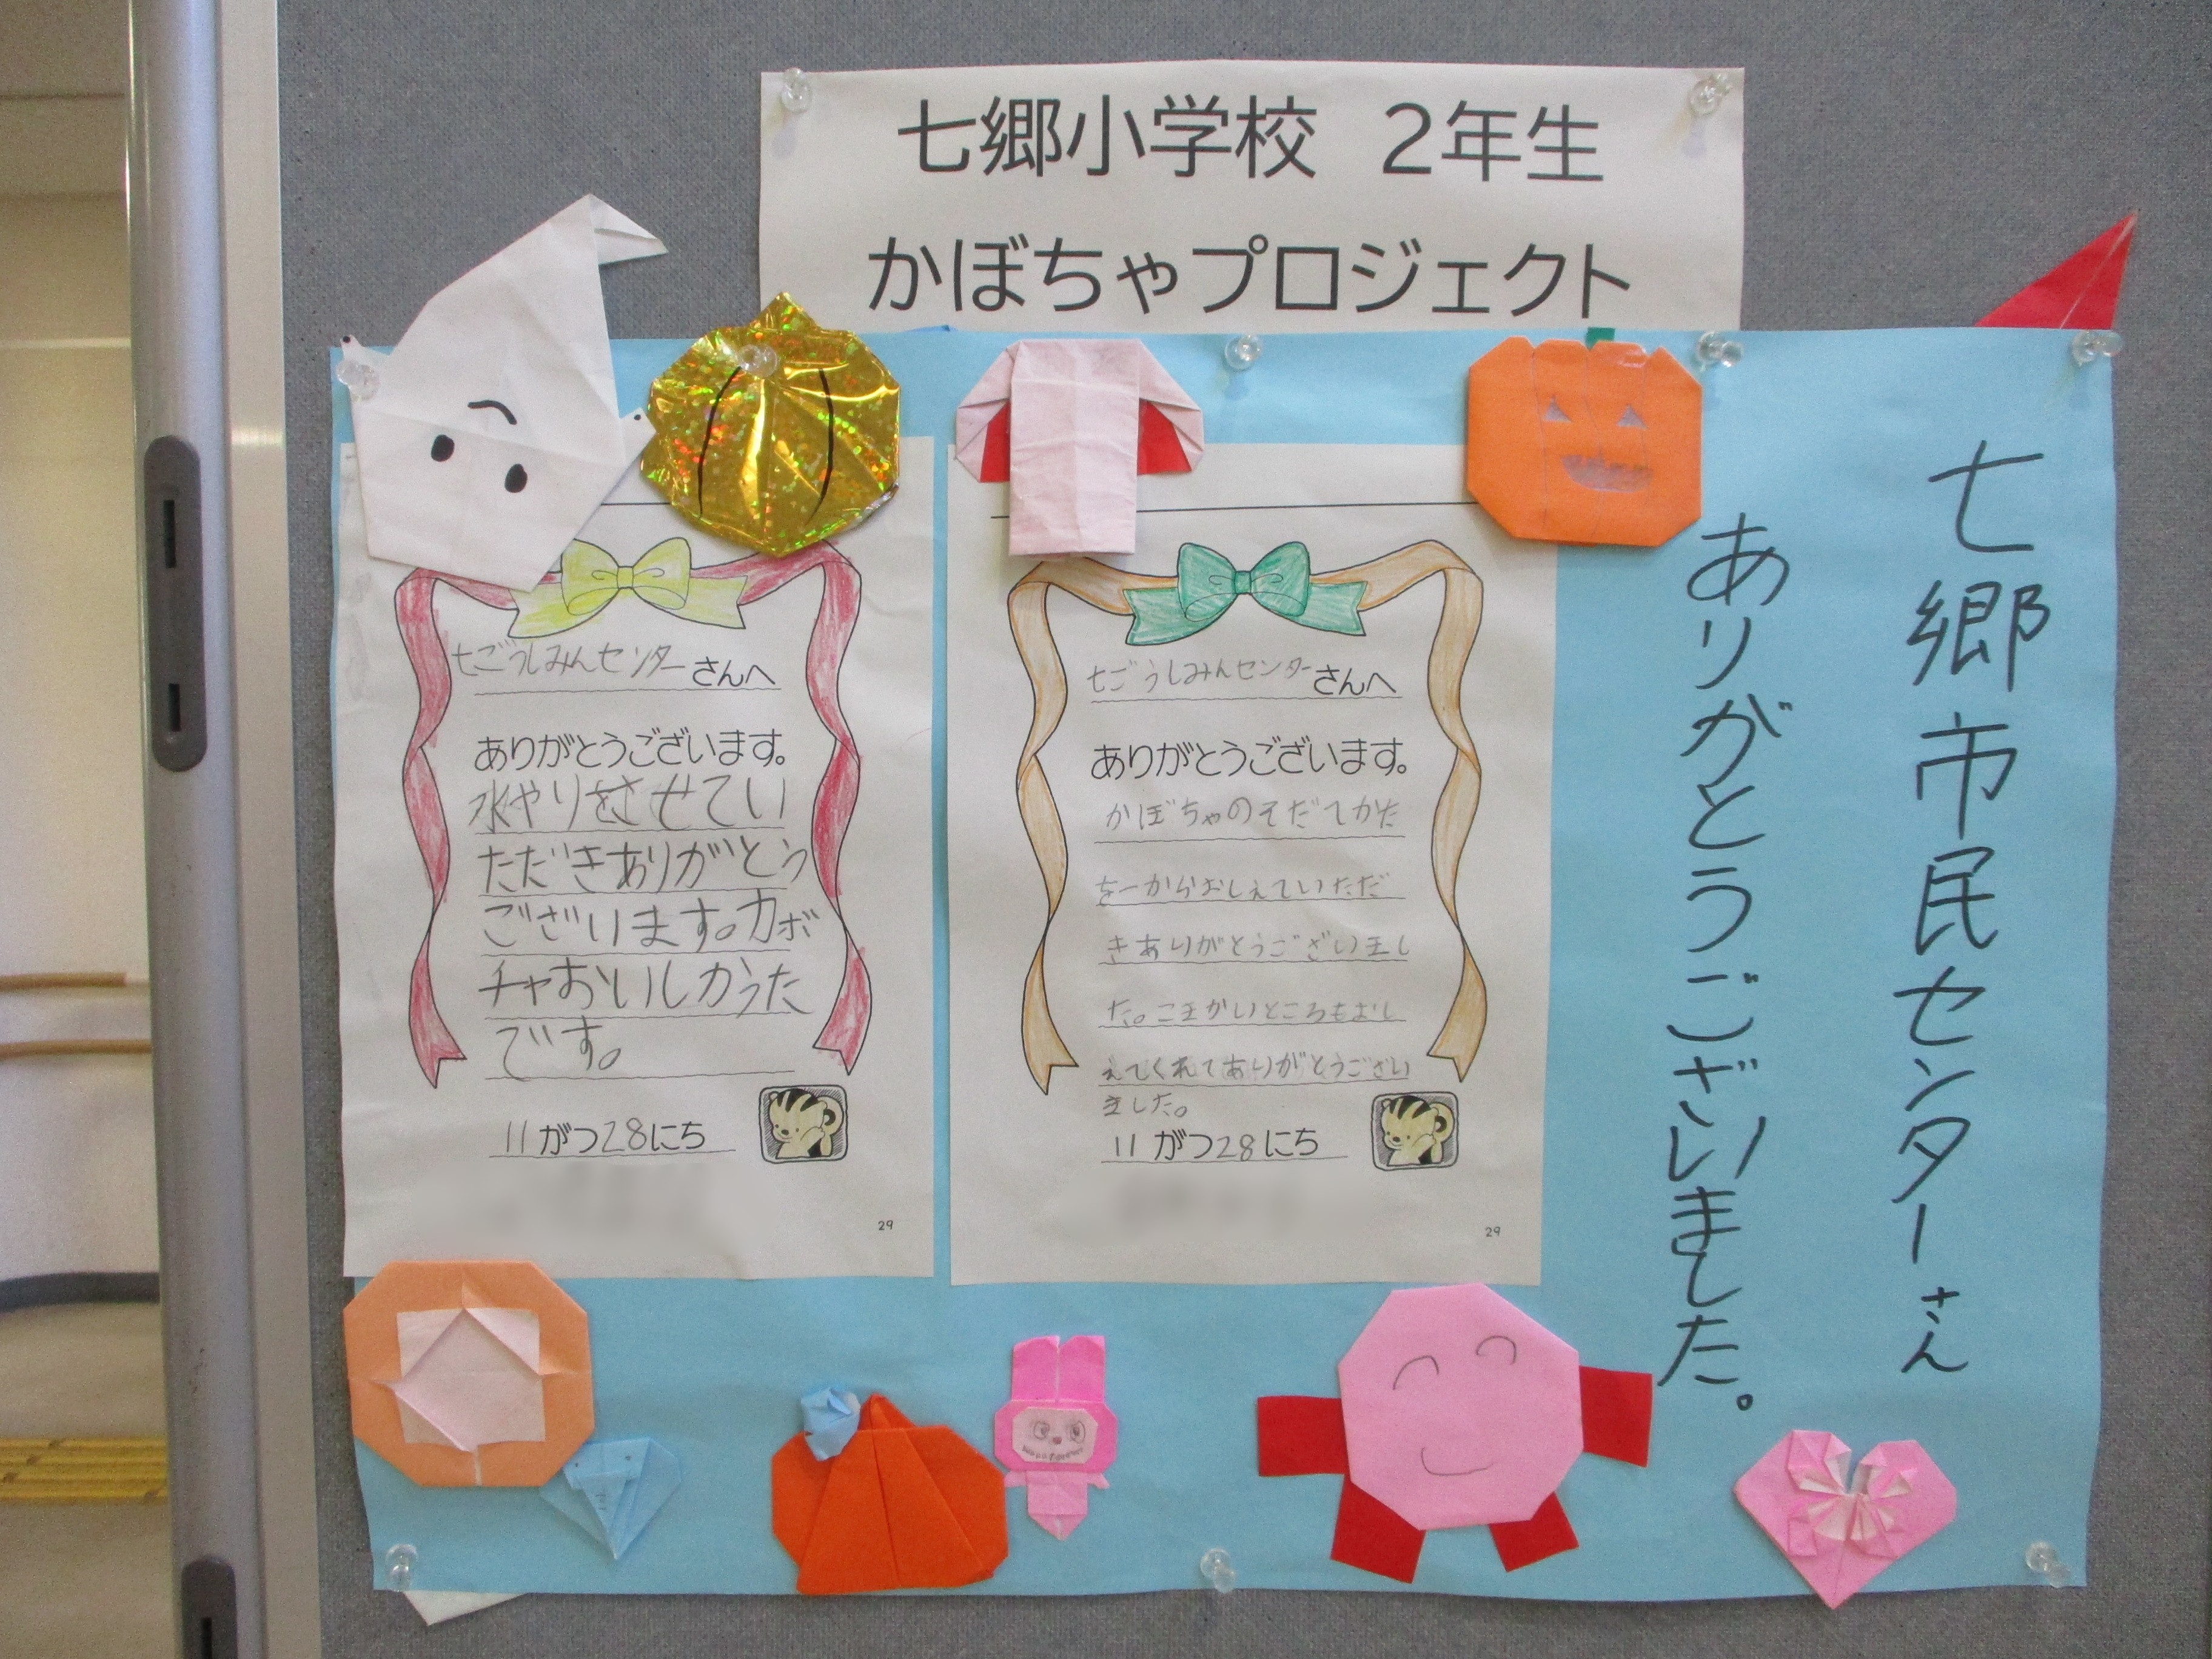 七郷小学校 2年生
かぼちゃプロジェクト
七郷市民センターさん
ありがとうございました。
七ごうしみんセンターさんへ
ありがとうございます。
水やりをさせてい
ただきありがとう
ございます。カボ
チャおいしかうた
です。
11がつ28にち
29
七ごうしみんセンターさんへ
ありがとうございます。
かぼちゃのそだてかた
を一からおしえていただ
きありがとうございまし
た。こまかいところもおし
えてくれてありがとうござい
ました。
11がつ28にち
29